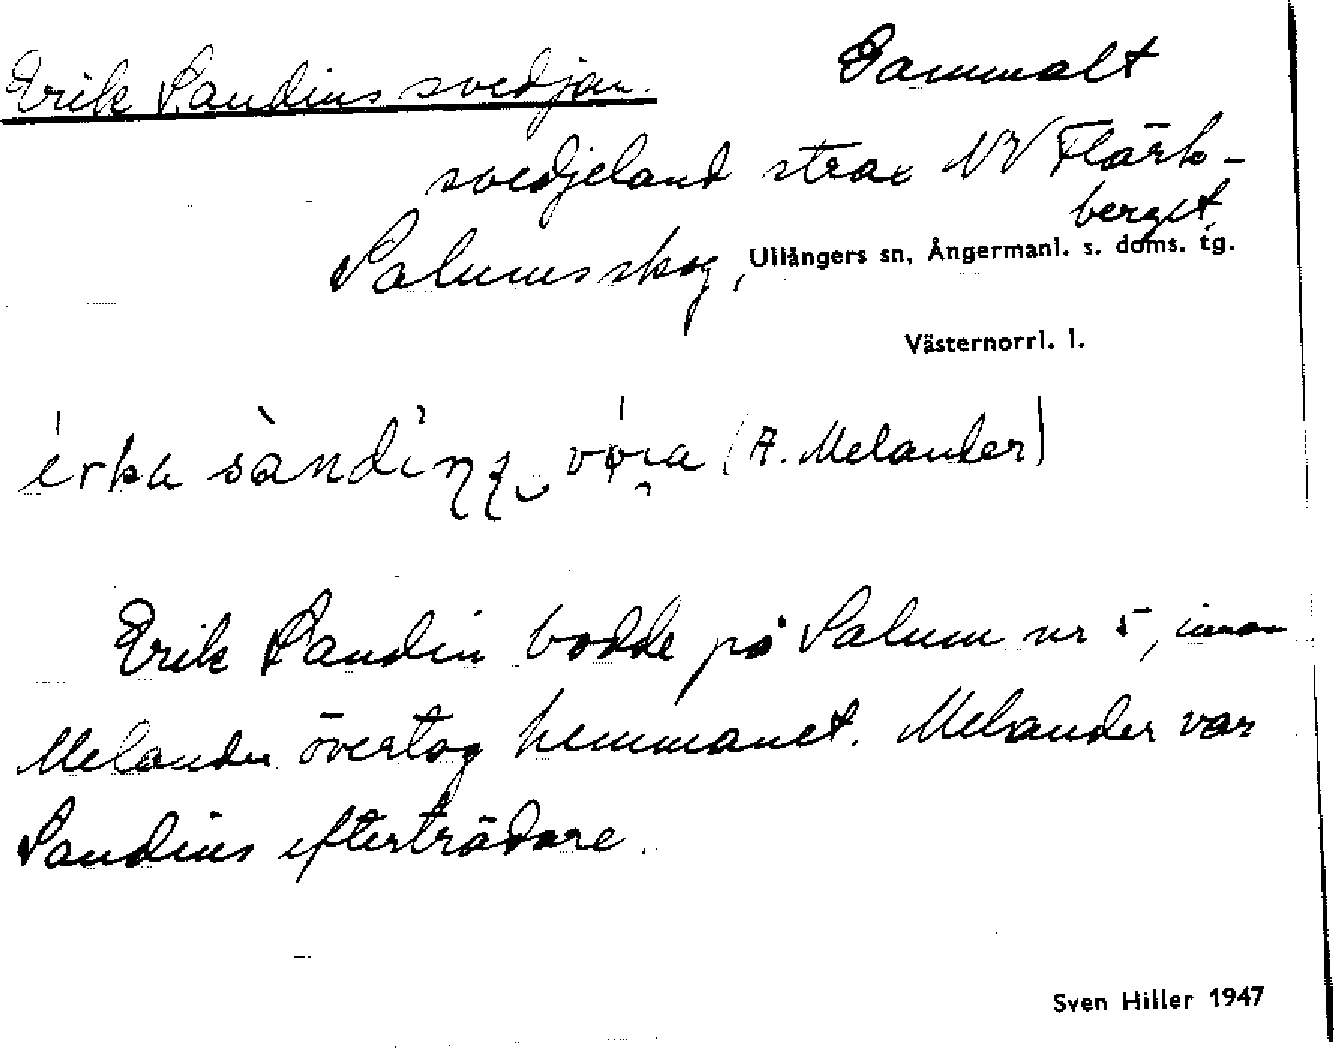 Erik Sandins svedjan. Gammalt
svedjeland strax NV Flärk-
berget.
Salumsskog, Ullångers sn, Ångermanl. s. doms. tg.
Västernorrl. l.
(A. Melander)
Erik Sandin bodde på Salum nr 5, innan
Melander övertog hemmanet. Melander var
Sandins efterträdare.
Sven Hiller 1947